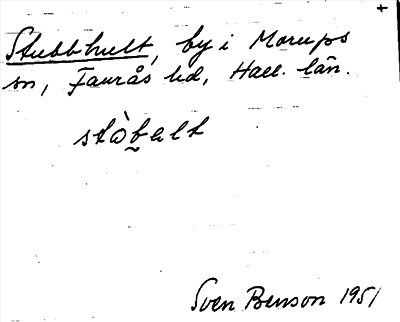 +
Stubbhult, by i Morups
sn, Faurås hd, Hall. län.
stòb̰ult
Sven Benson 1951